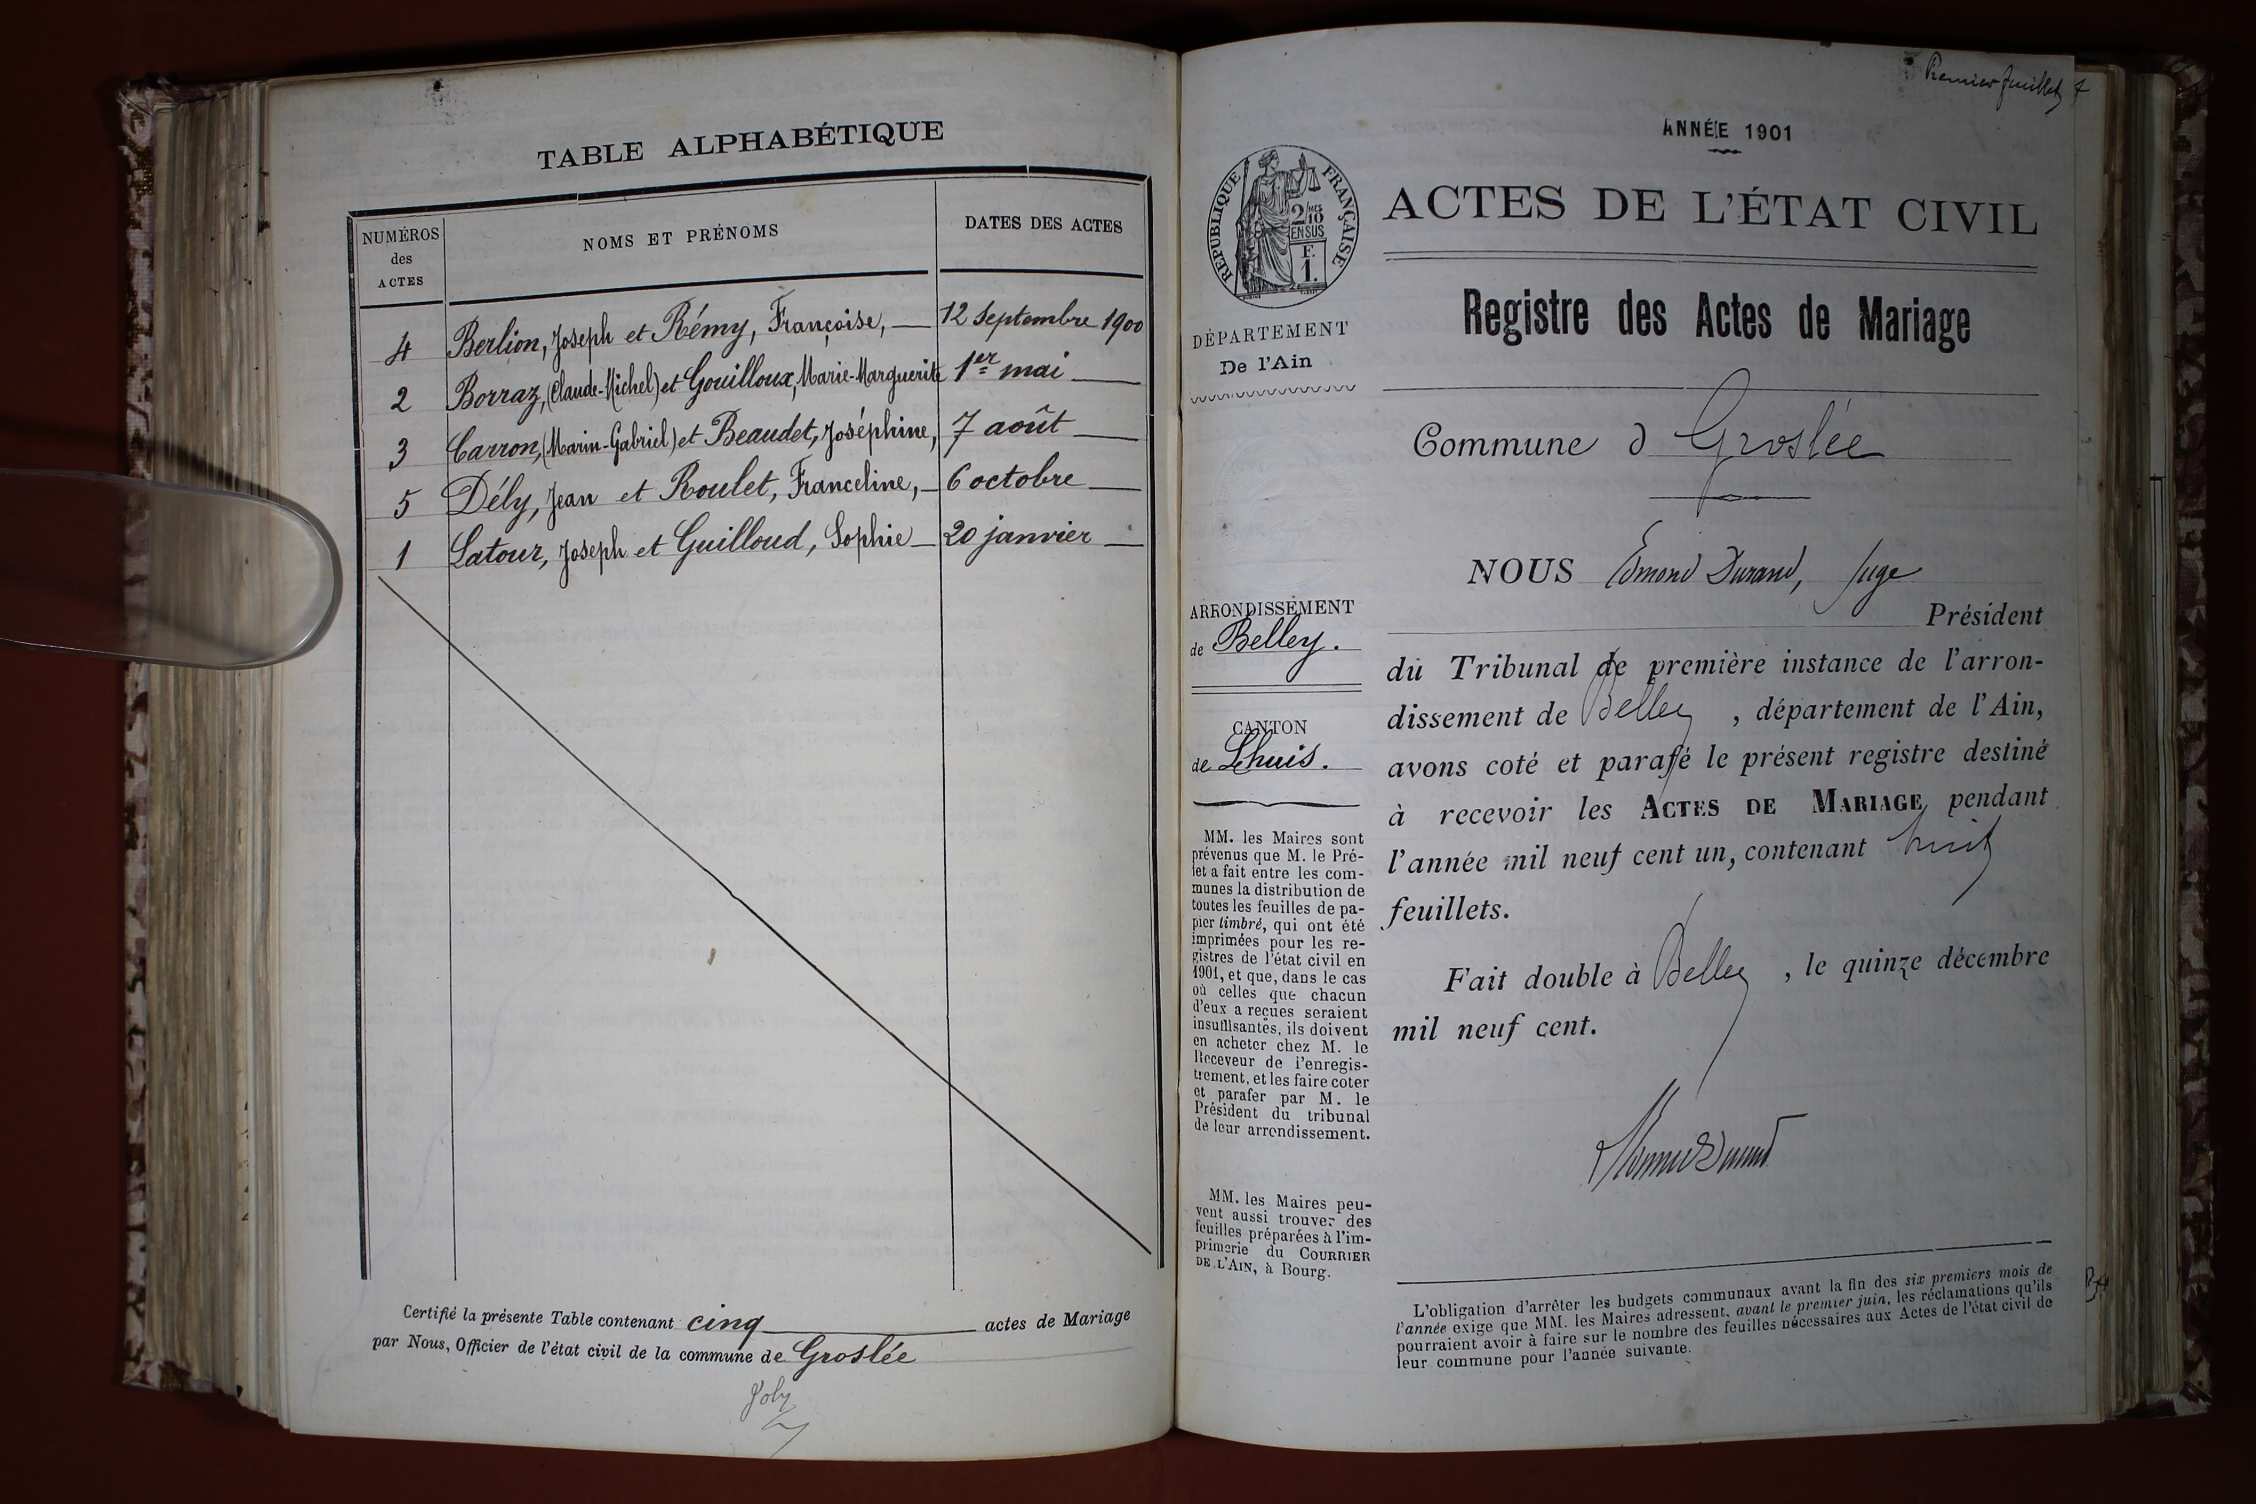 TABLE ALPHABÉTIQUE
NUMÉROS des ACTES
NOMS ET PRÉNOMS
DATES DES ACTES
4 Berlion, Joseph et Rémy, Françoise, 12 Septembre 1900
2 Borraz, (Claude-Michel) et Gouilloux, Marie-Marguerite 1er mai
3 Carron, (Marin-Gabriel) et Beaudet, Joséphine, 7 août
5 Dély, Jean et Roulet, Franceline, 6 octobre
1 Latour, Joseph et Guilloud, Sophie 20 janvier
Certifié la présente Table contenant cinq actes de Mariage
par Nous, Officier de l'état civil de la commune de Groslée
Joly
Premier feuillet
ANNÉE 1901
RÉPUBLIQUE FRANÇAISE
2/10
EN SUS
F.
1.
ACTES DE L'ÉTAT CIVIL
Registre des Actes de Mariage
DÉPARTEMENT
De l'Ain
Commune d Groslée
NOUS Edmond Durand, Juge
Président
ARRONDISSEMENT
de Belley.
CANTON
de Lhuis.
du Tribunal de première instance de l'arron-
dissement de Belley, département de l'Ain,
avons coté et parafé le présent registre destiné
à recevoir les ACTES DE MARIAGE pendant
l'année mil neuf cent un, contenant huit
feuillets.
Fait double à Belley, le quinze décembre
mil neuf cent.
MM. les Maires sont
prévenus que M. le Pré-
fet a fait entre les com-
munes la distribution de
toutes les feuilles de pa-
pier timbré, qui ont été
imprimées pour les re-
gistres de l'état civil en
1901, et que, dans le cas
où celles que chacun
d'eux a reçues seraient
insuffisantes, ils doivent
en acheter chez M. le
Receveur de l'enregis-
trement, et les faire coter
et parafer par M. le
Président du tribunal
de leur arrondissement.
MM. les Maires peu-
vent aussi trouver des
feuilles préparées à l'im-
primerie du COURRIER
DE L'AIN, à Bourg.
L'obligation d'arrêter les budgets communaux avant la fin des six premiers mois de
l'année exige que MM. les Maires adressent, avant le premier juin, les réclamations qu'ils
pourraient avoir à faire sur le nombre des feuilles nécessaires aux Actes de l'état civil de
leur commune pour l'année suivante.